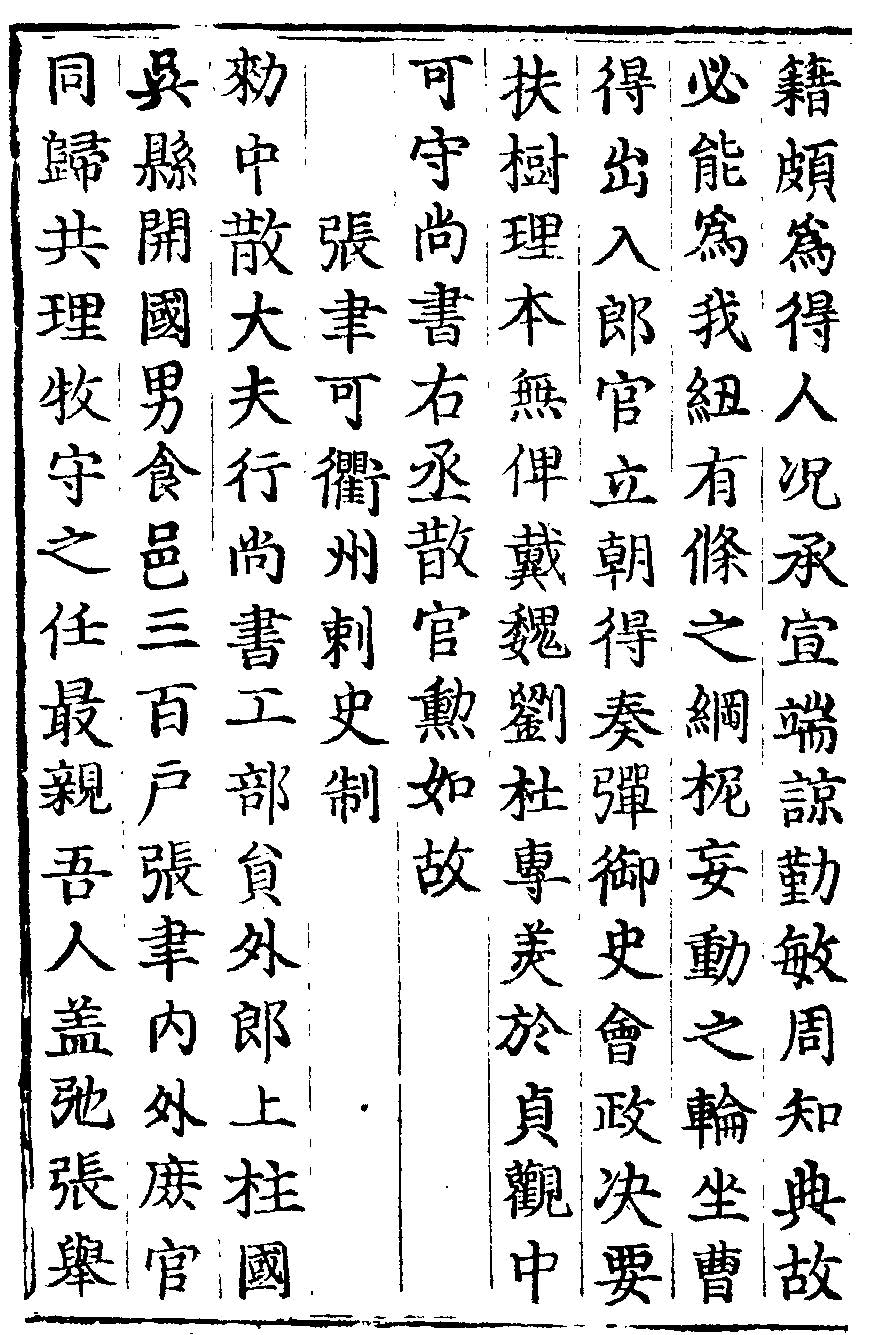 籍頗爲得人况承宣端諒勤敏周知典故
必能爲我紐有條之綱柅妄動之輪坐曹
得出入郎官立朝得奏彈御史會政决要
扶樹理本無俾戴魏劉杜專美於貞觀中
可守尚書右丞散官勲如故
張聿可衢州刺史制
勑中散大夫行尚書工部貟外郎上柱國
吳縣開國男食邑三百戶張聿內外庻官
同歸共理牧守之任最親吾人盖弛張舉